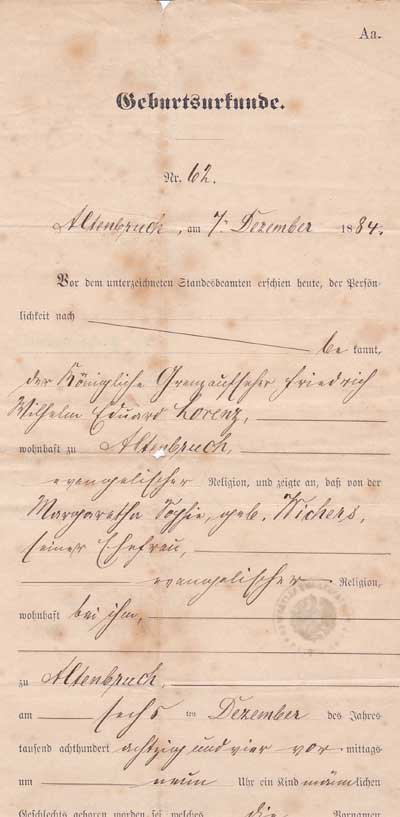 Aa.
Geburtsurkunde.
Nr. 62.
Altenbruch, am 7. Dezember 1884.
Vor dem unterzeichneten Standesbeamten erschien heute, der Persön-
lichkeit nach
be kannt,
der Königliche Grenzaufseher Friedrich
Wilhelm Eduard Lorenz,
wohnhaft zu Altenbruch,
evangelischer Religion, und zeigte an, daß von der
Margaretha Sophie, geb. Wichers,
seiner Ehefrau,
evangelischer Religion,
wohnhaft bei ihm,
zu Altenbruch,
am sechs ten Dezember des Jahres
tausend achthundert achtzig und vier vor mittags
um neun Uhr ein Kind männlichen
Geschlechts geboren worden sei, welches die Vornamen